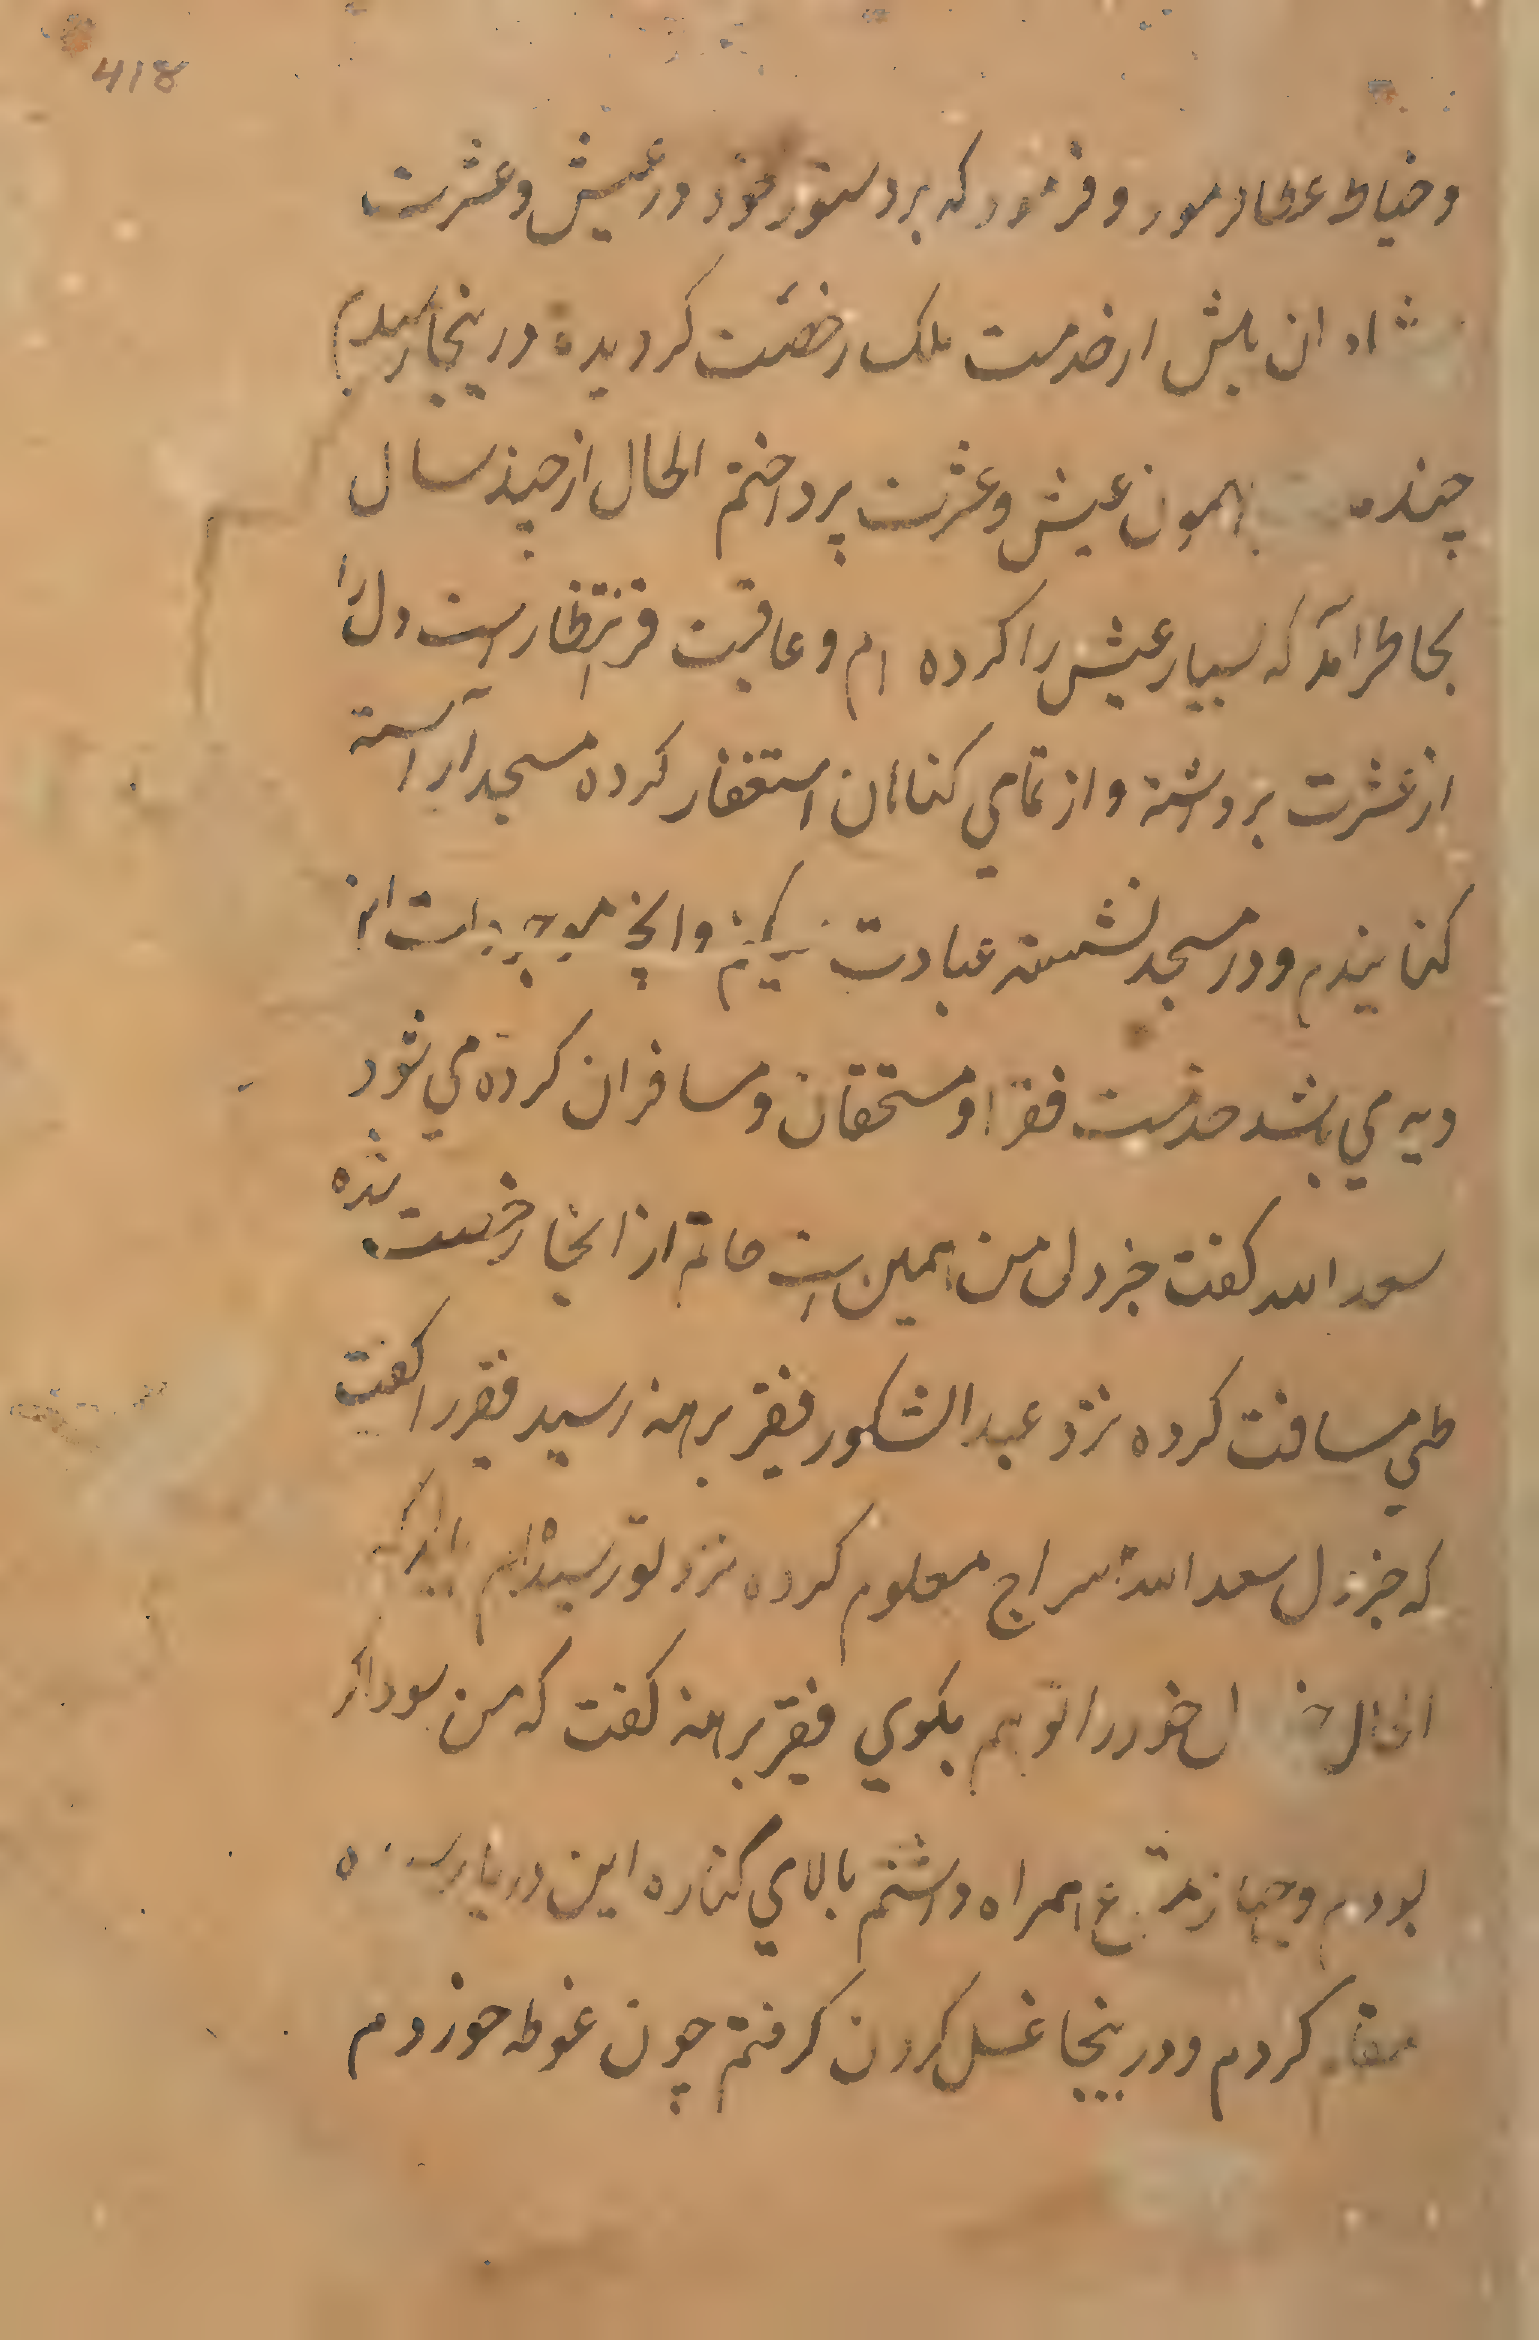 418
وخیاط عطار نمود و فرمود که بر دستور خود در عیش و عشرت
شادان باش از خدمت ملک رخصت کردیده در ینجا رسیدم
چند بهمون عیش و عشرت پرداختم الحال از چند سال
بخاطر آمد که بسیار عیش را کرده ام و عاقبت در انتظار است دل را
از عشرت برداشته و از تمامي کناهان استغفار کرده مسجد آراسته
کنانیدم و در مسجد نشسته عبادت میکنم و انچه موجودات از
دیه مي باشد خدمت فقرا و مستحقان و مسافران کرده مي شود
سعد الله کفت خبر دل من همین است حاتم از انجا رخصت شده
طي مسافت کرده نزد عبد الشکور فقیر برهنه رسید فقیر را کفت
که خبر دل سعد الله سراج معلوم کرده نزد تو رسیده ام باید که
الحال خود را تو هم بکوي فقیر برهنه کفت که من سوداکر
بودم و جهاز همراه داشتم بالاي کناره این دریا رسیده
مقام کردم و در ینجا غسل کردن کرفتم چون غوطه خوردم